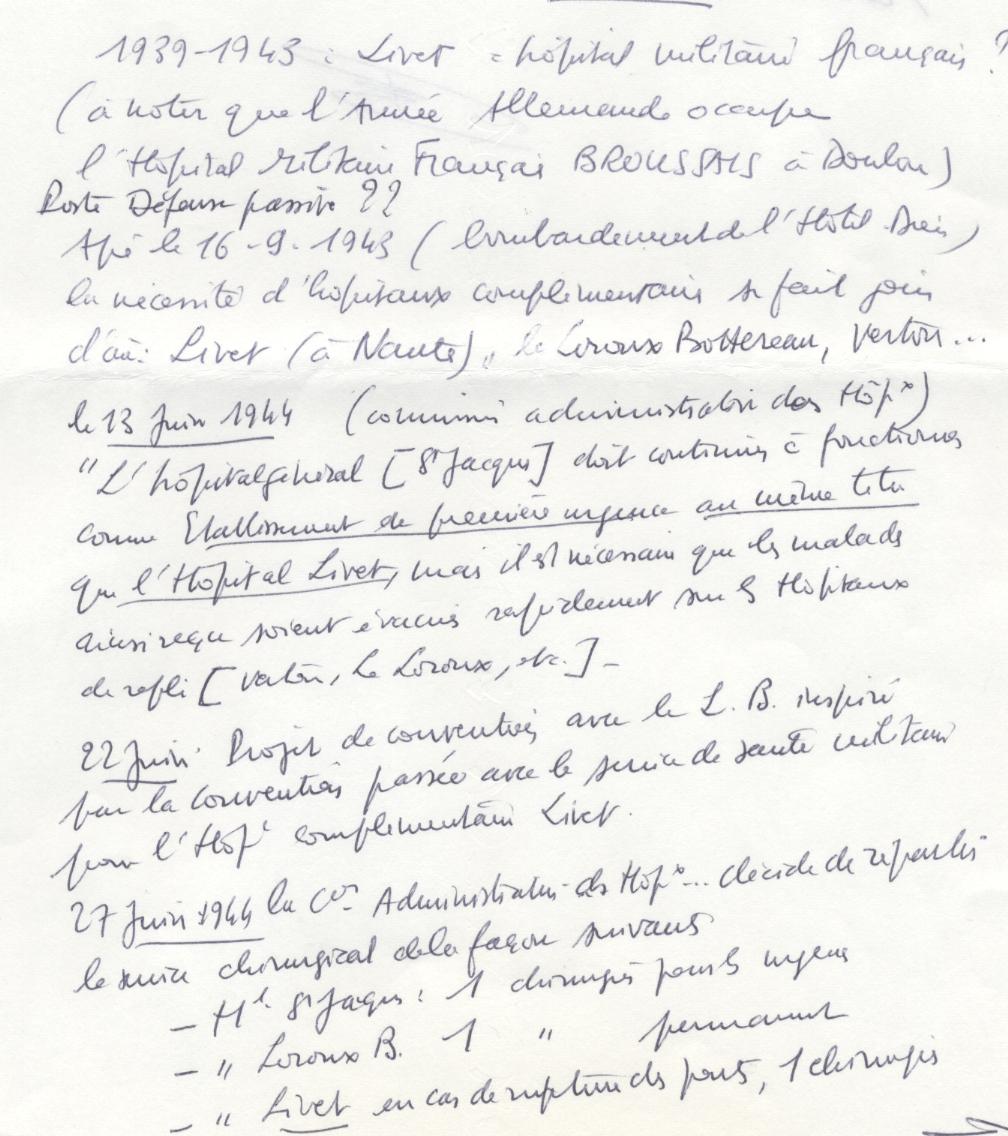 1939-1943 : Livet = hôpital militaire français ?
(à noter que l'Armée Allemande occupe
l'Hôpital Militaire Français BROUSSAIS à Doulon)
Poste Défense passive ??
Après le 16-9-1943 (bombardement de l'Hôtel-Dieu)
la nécessité d'hôpitaux complémentaires se fait
d'où : Livet (à Nantes), le Loroux Bottereau, Vertou...
le 13 Juin 1944 (commission administrative des Hôpx)
"L'hôpital général [St Jacques] doit continuer à fonctionner
comme Etablissement de première urgence au même titre
que l'Hôpital Livet, mais il est nécessaire que les malades
ainsi reçus soient évacués rapidement sur les Hôpitaux
de repli [Vertou, Le Loroux, etc.] -
22 Juin : Projet de convention avec le L. B. inspiré
par la convention passée avec le service de santé militaire
pour l'Hôpl complémentaire Livet.
27 Juin 1944 la Con Administrative des Hôpx... décide de répartir
le service chirurgical de la façon suivante
- Hl St Jacques : 1 chirurgien pour les urgences
- " Loroux B. 1 " permanent
- " Livet en cas de rupture des ponts, 1 chirurgien